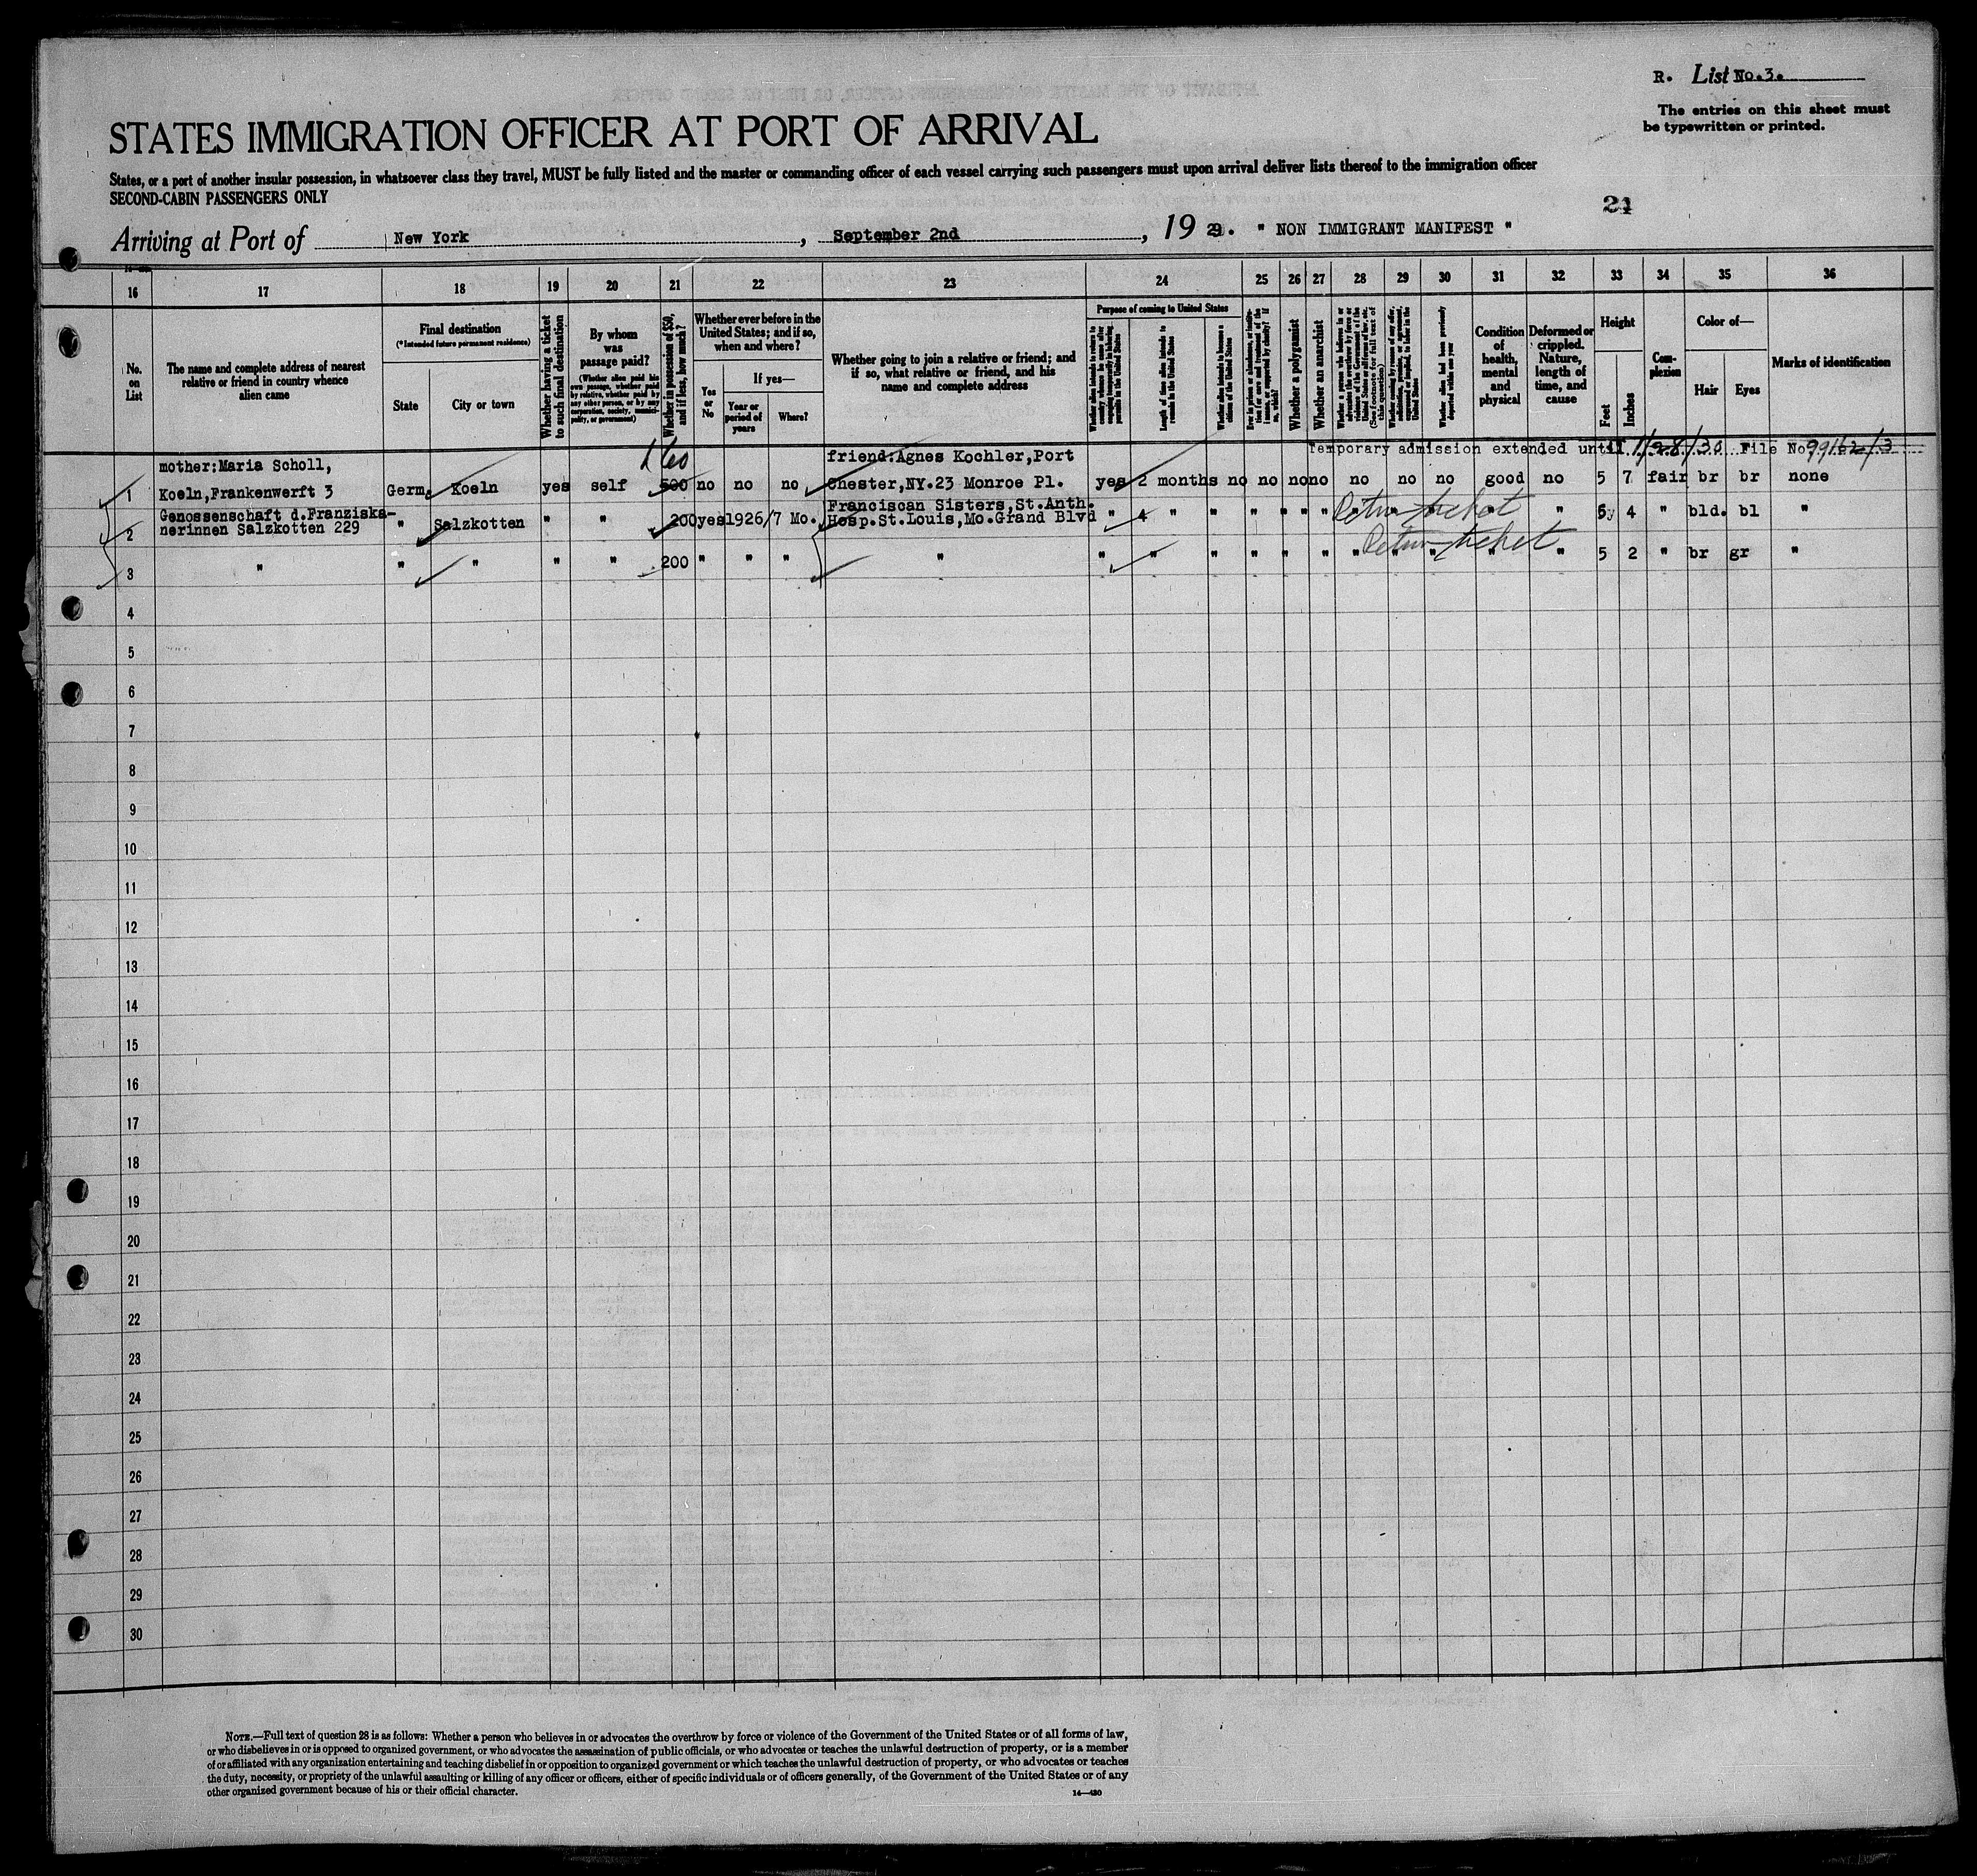 R. List No.3.
The entries on this sheet must
be typewritten or printed.
STATES IMMIGRATION OFFICER AT PORT OF ARRIVAL
States, or a port of another insular possession, in whatsoever class they travel, MUST be fully listed and the master or commanding officer of each vessel carrying such passengers must upon arrival deliver lists thereof to the immigration officer
SECOND-CABIN PASSENGERS ONLY
Arriving at Port of New York, September 2nd, 19 29. " NON IMMIGRANT MANIFEST "
16 17 18 19 20 21 22 23 24 25 26 27 28 29 30 31 32 33 34 35 36
No.
on
List
The name and complete address of nearest
relative or friend in country whence
alien came
Final destination
(*Intended future permanent residence)
State
City or town
Whether having a ticket
to such final destination
By whom
was
passage paid?
(Whether alien paid his
own passage, whether paid
by relative, whether paid by
any other person, or by any
corporation, society, munici-
pality, or government)
Whether in possession of $50,
and if less, how much?
Whether ever before in the
United States; and if so,
when and where?
Yes
or
No
If yes—
Year or
period of
years
Where?
Whether going to join a relative or friend; and
if so, what relative or friend, and his
name and complete address
Purpose of coming to United States
Length of time alien intends to
remain in the United States
Whether alien intends to become a
citizen of the United States
Whether a polygamist
Whether an anarchist
Condition
of
health,
mental
and
physical
Deformed or
crippled.
Nature,
length of
time, and
cause
Height
Feet
Inches
Com-
plexion
Color of—
Hair
Eyes
Marks of identification
Temporary admission extended until 1/28/30 File No 99162/3
mother:Maria Scholl, friend:Agnes Kochler,Port
1 Koeln,Frankenwerft 3 Germ. Koeln yes self 500 no no no Chester,NY.23 Monroe Pl. yes 2 months no no no no no no no good no 5 7 fair br br none
Genossenschaft d.Franziska- Franciscan Sisters,St.Anth.
2 nerinnen Salzkotten 229 " Salzkotten " " 200 yes 1926/7 Mo. Hosp.St.Louis,Mo.Grand Blvd " 4 " " " " " " " " " " 5 4 " bld. bl "
Return ticket
3 " " " " " 200 " " " " " " " " " " " " " " " 5 2 " br gr "
Return ticket
4
5
6
7
8
9
10
11
12
13
14
15
16
17
18
19
20
21
22
23
24
25
26
27
28
29
30
NOTE.—Full text of question 28 is as follows: Whether a person who believes in or advocates the overthrow by force or violence of the Government of the United States or of all forms of law,
or who disbelieves in or is opposed to organized government, or who advocates the assassination of public officials, or who advocates or teaches the unlawful destruction of property, or is a member
of or affiliated with any organization entertaining and teaching disbelief in or opposition to organized government or which teaches the unlawful destruction of property, or who advocates or teaches
the duty, necessity, or propriety of the unlawful assaulting or killing of any officer or officers, either of specific individuals or of officers generally, of the Government of the United States or of any
other organized government because of his or their official character.
14—430